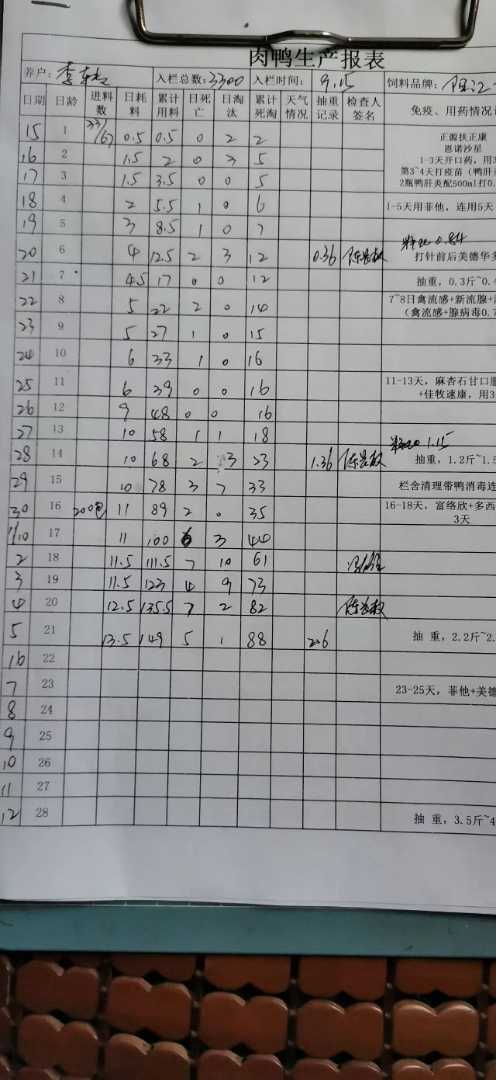 肉鸭生产报表
养户: 入栏总数:3300 入栏时间: 9.15 饲料品牌:
日期 日龄 进料数 日耗料 累计用料 日死亡 日淘汰 累计死淘 天气情况 抽重记录 检查人签名 免疫、用药情况
15 1 0.5 0.5 0 2 2 正源扶正康
恩诺沙星
1-3天开口药,用3
16 2 1.5 2 0 3 5
第3~4天打疫苗(鸭肝
17 3 1.5 3.5 0 0 5
2瓶鸭肝炎配500ml打0.
18 4 2 5.5 1 0 6 1-5天用菲他,连用5天
19 5 3 8.5 1 0 7
20 6 4 12.5 2 3 12 0.36 0.84
打针前后美德华多
21 7 4.5 17 0 0 12 抽重,0.3斤~0.4
22 8 5 22 2 0 14 7~8日禽流感+新流腺+
(禽流感+腺病毒0.7
23 9 5 27 1 0 15
24 10 6 33 1 0 16
25 11 6 39 0 0 16 11-13天,麻杏石甘口服
+佳牧速康,用3
26 12 9 48 0 0 16
27 13 10 58 1 1 18 1.15
28 14 10 68 2 3 23 1.36 抽重,1.2斤~1.5
29 15 10 78 3 7 33 栏舍清理带鸭消毒连
30 16 200包 11 89 2 0 35 16-18天,富络欣+多西
3天
1/10 17 11 100 3 44
2 18 11.5 111.5 7 10 61
3 19 11.5 123 4 9 73
4 20 12.5 135.5 7 2 82
5 21 13.5 149 5 1 88 2.6 抽重,2.2斤~2.
6 22
7 23 23-25天,菲他+美德
8 24
9 25
10 26
11 27
12 28 抽重,3.5斤~4